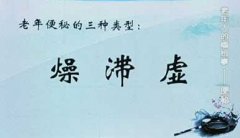 老年便秘的三种类型:
燥 滞 虚